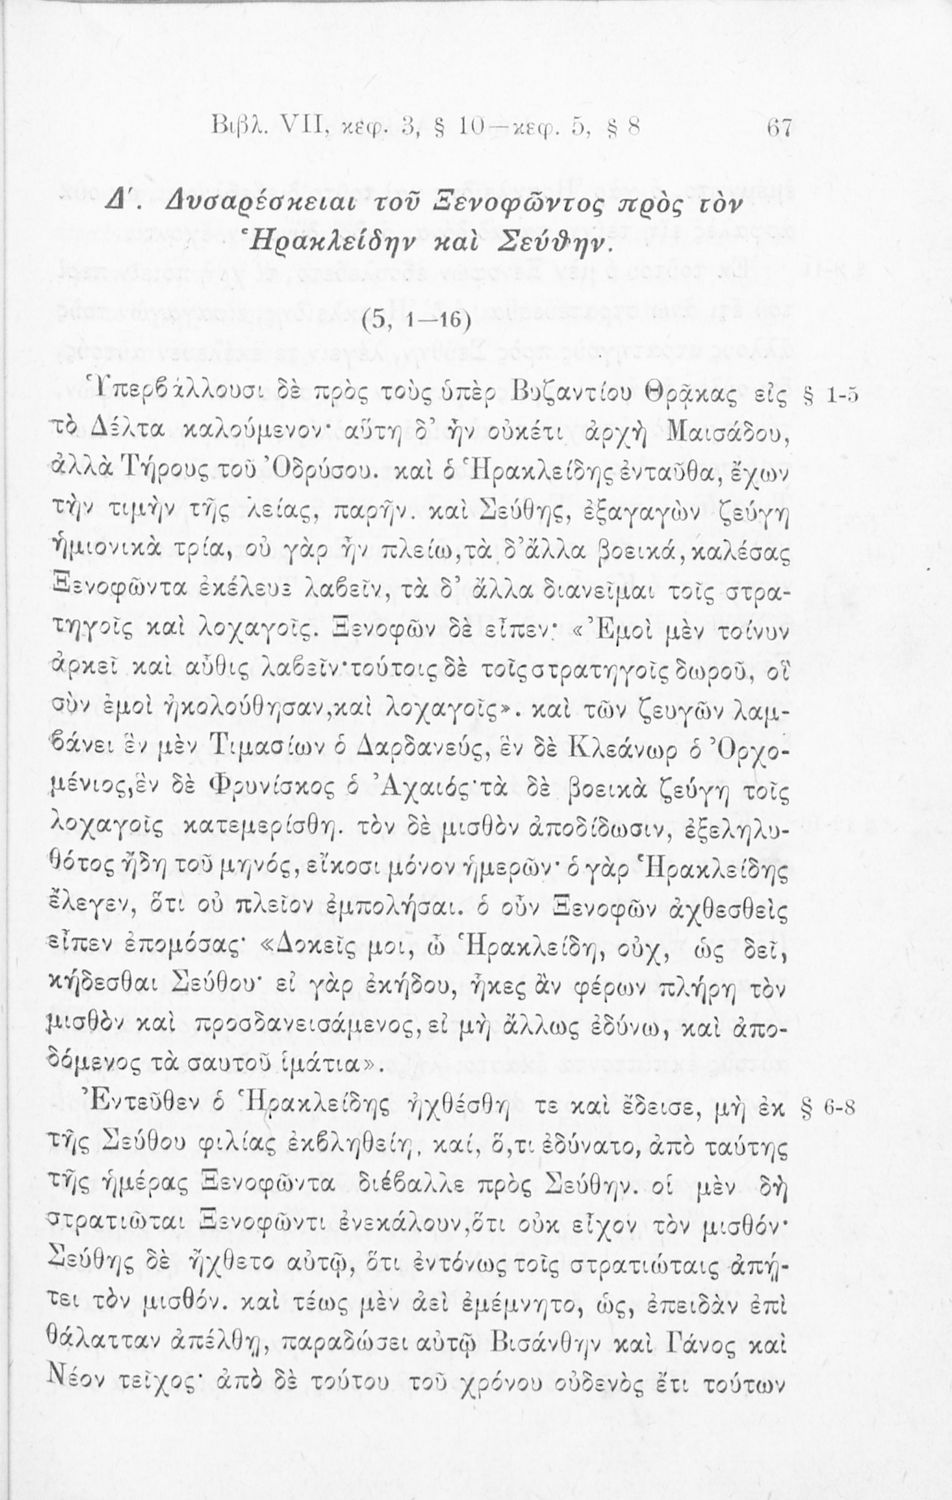 Βιβλ. VII, κεφ. 3, § 10—κεφ. 5, § 8 67
Δ′. Δυσαρέσκειαι τοῦ Ξενοφῶντος πρὸς τὸν
Ἡρακλείδην καὶ Σεύθην.
(5, 1—16)
Ὑπερβάλλουσι δὲ πρὸς τοὺς ὑπὲρ Βυζαντίου Θρᾷκας εἰς § 1-5
τὸ Δέλτα καλούμενον· αὕτη δ’ ἦν οὐκέτι ἀρχὴ Μαισάδου,
ἀλλὰ Τήρους τοῦ Ὀδρύσου. καὶ ὁ Ἡρακλείδης ἐνταῦθα, ἔχων
τὴν τιμὴν τῆς λείας, παρῆν. καὶ Σεύθης, ἐξαγαγὼν ζεύγη
ἡμιονικὰ τρία, οὐ γὰρ ἦν πλείω, τὰ δ’ ἄλλα βοεικά, καλέσας
Ξενοφῶντα ἐκέλευε λαβεῖν, τὰ δ’ ἄλλα διανεῖμαι τοῖς στρα-
τηγοῖς καὶ λοχαγοῖς. Ξενοφῶν δὲ εἶπεν· «Ἐμοὶ μὲν τοίνυν
ἀρκεῖ καὶ αὖθις λαβεῖν· τούτοις δὲ τοῖς στρατηγοῖς δωροῦ, οἳ
σὺν ἐμοὶ ἠκολούθησαν, καὶ λοχαγοῖς». καὶ τῶν ζευγῶν λαμ-
βάνει ἓν μὲν Τιμασίων ὁ Δαρδανεύς, ἓν δὲ Κλεάνωρ ὁ Ὀρχο-
μένιος, ἓν δὲ Φρυνίσκος ὁ Ἀχαιός· τὰ δὲ βοεικὰ ζεύγη τοῖς
λοχαγοῖς κατεμερίσθη. τὸν δὲ μισθὸν ἀποδίδωσιν, ἐξεληλυ-
θότος ἤδη τοῦ μηνός, εἴκοσι μόνον ἡμερῶν· ὁ γὰρ Ἡρακλείδης
ἔλεγεν, ὅτι οὐ πλεῖον ἐμπολήσαι. ὁ οὖν Ξενοφῶν ἀχθεσθεὶς
εἶπεν ἐπομόσας· «Δοκεῖς μοι, ὦ Ἡρακλείδη, οὐχ, ὡς δεῖ,
κήδεσθαι Σεύθου· εἰ γὰρ ἐκήδου, ἧκες ἂν φέρων πλήρη τὸν
μισθὸν καὶ προσδανεισάμενος, εἰ μὴ ἄλλως ἐδύνω, καὶ ἀπο-
δόμενος τὰ σαυτοῦ ἱμάτια».
Ἐντεῦθεν ὁ Ἡρακλείδης ἠχθέσθη τε καὶ ἔδεισε, μὴ ἐκ § 6-8
τῆς Σεύθου φιλίας ἐκβληθείη, καί, ὅ,τι ἐδύνατο, ἀπὸ ταύτης
τῆς ἡμέρας Ξενοφῶντα διέβαλλε πρὸς Σεύθην. οἱ μὲν δὴ
στρατιῶται Ξενοφῶντι ἐνεκάλουν, ὅτι οὐκ εἶχον τὸν μισθόν·
Σεύθης δὲ ἤχθετο αὐτῷ, ὅτι ἐντόνως τοῖς στρατιώταις ἀπῄ-
τει τὸν μισθόν. καὶ τέως μὲν ἀεὶ ἐμέμνητο, ὡς, ἐπειδὰν ἐπὶ
θάλατταν ἀπέλθῃ, παραδώσει αὐτῷ Βισάνθην καὶ Γάνος καὶ
Νέον τεῖχος· ἀπὸ δὲ τούτου τοῦ χρόνου οὐδενὸς ἔτι τούτων